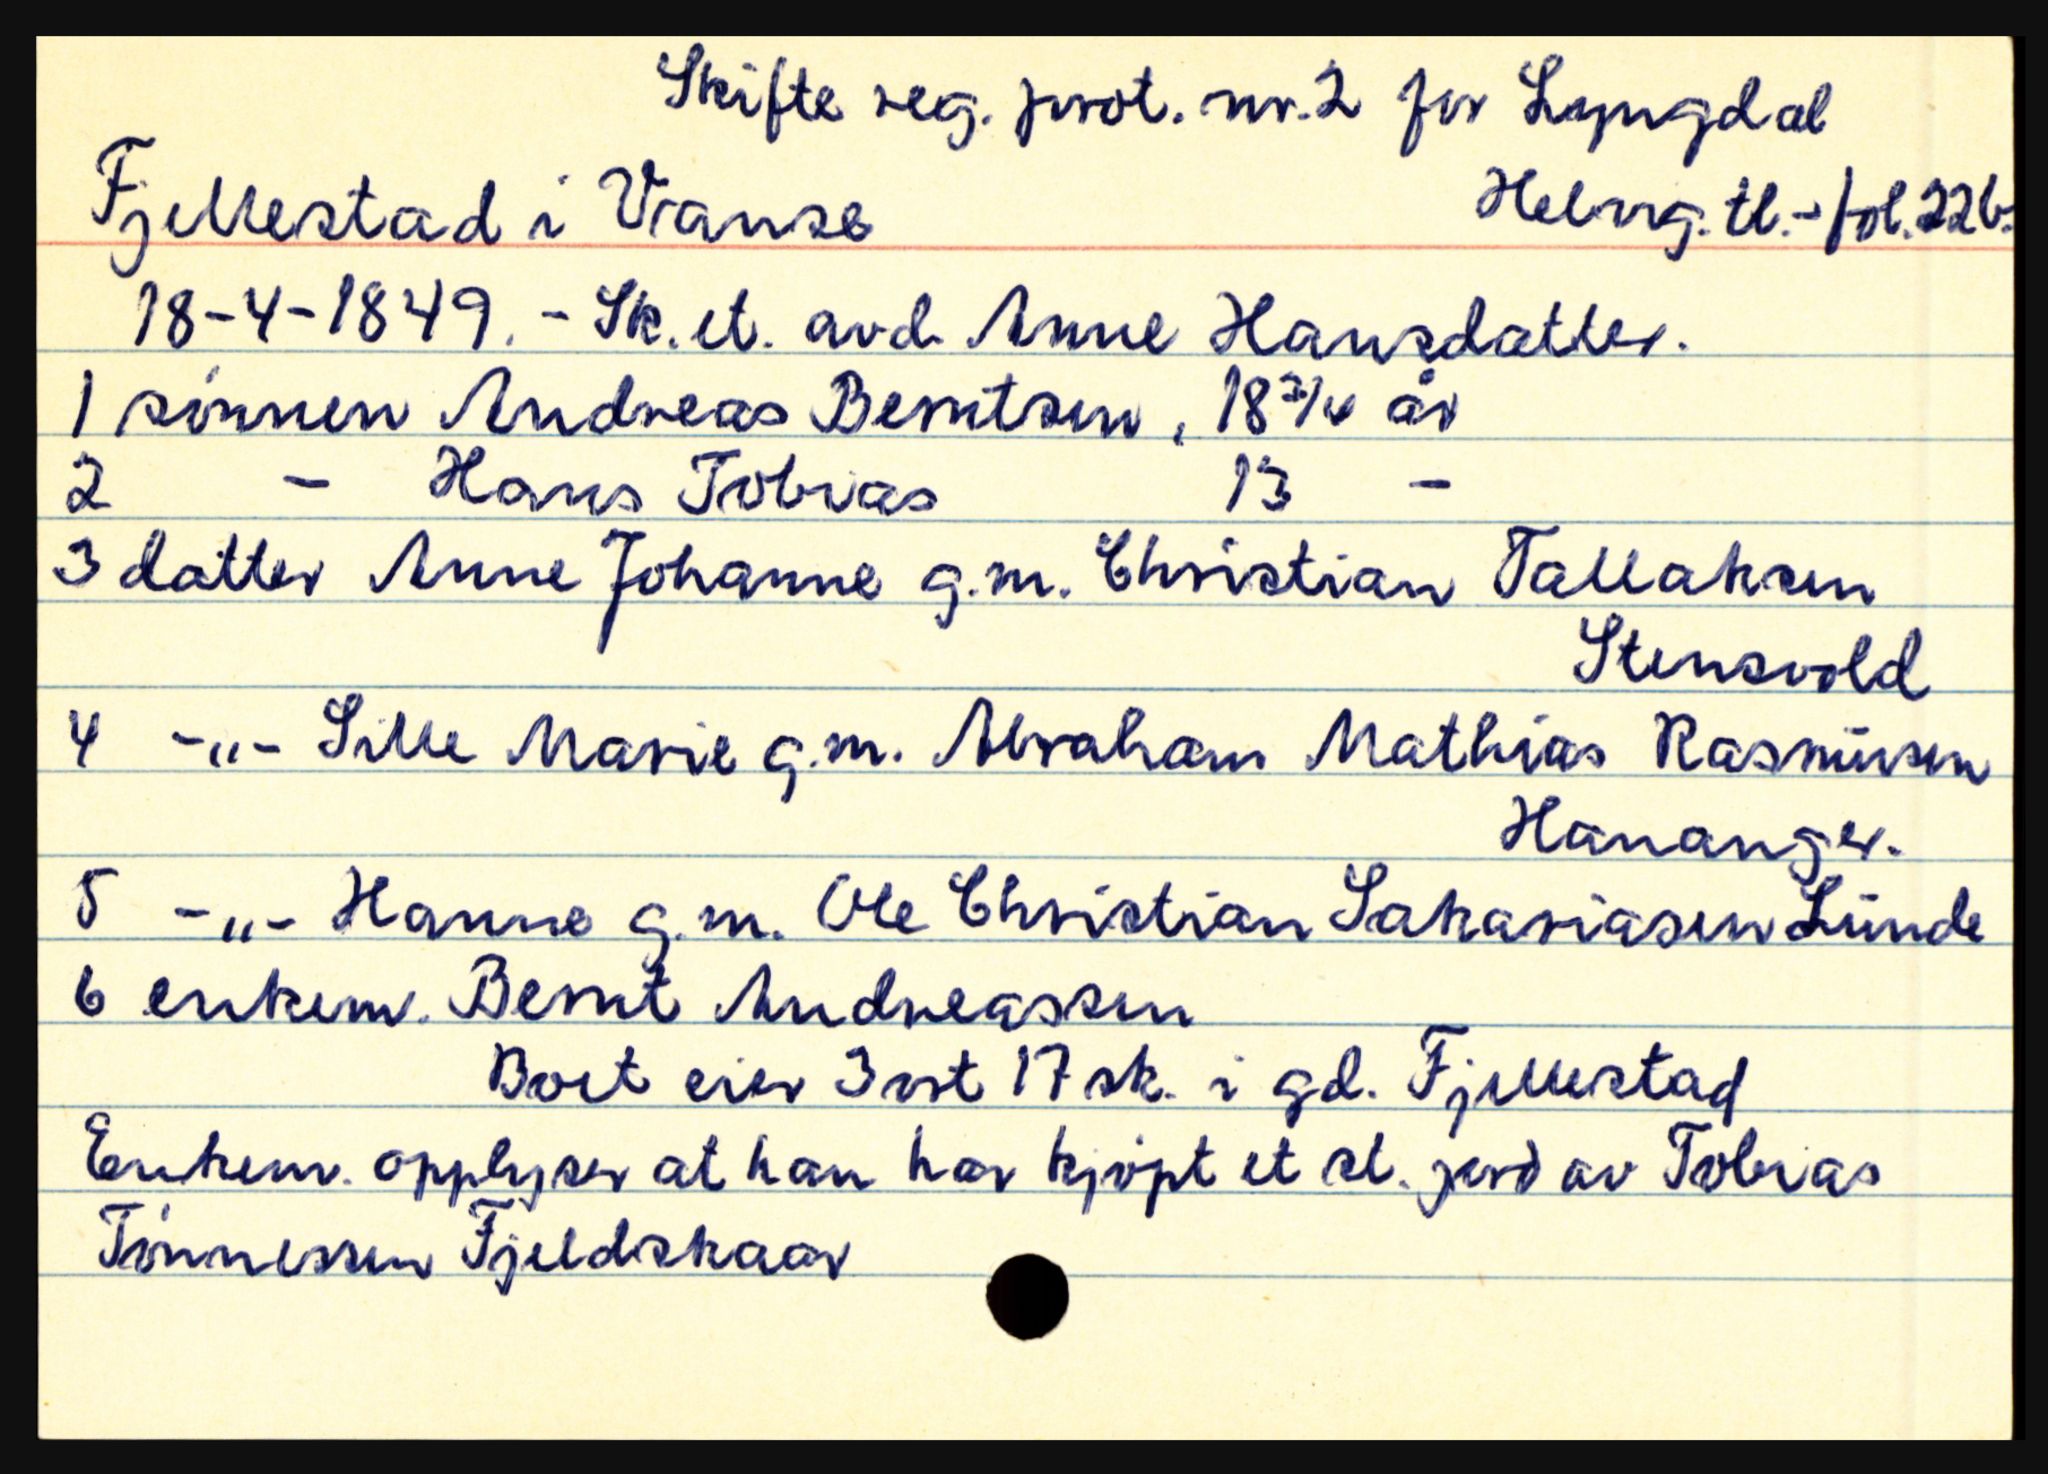 Skifte reg. prot. nr. 2 for Lyngdal
Fjellestad i Vanse Helvig. tl. - fol. 22b.
18-4-1849. - Sk. et. avd. Anne Hansdatter.
1 sønnen Andreas Berntsen, 18 3/4 år
2 - Hans Tobias 13 -
3 datter Anne Johanne g.m. Christian Tallaksen
Stensvold
4 -"- Sille Marie g.m. Abraham Mathias Rasmussen
Hananger.
5 -"- Hanne g.m. Ole Christian Sakariasen Lunde
6 enkem. Bernt Andreassen
Boet eier 3 rst 17 sk. i gd. Fjellestad
Enkem. opplyser at han har kjøpt et st. jord av Tobias
Tønnessen Fjeldskaar